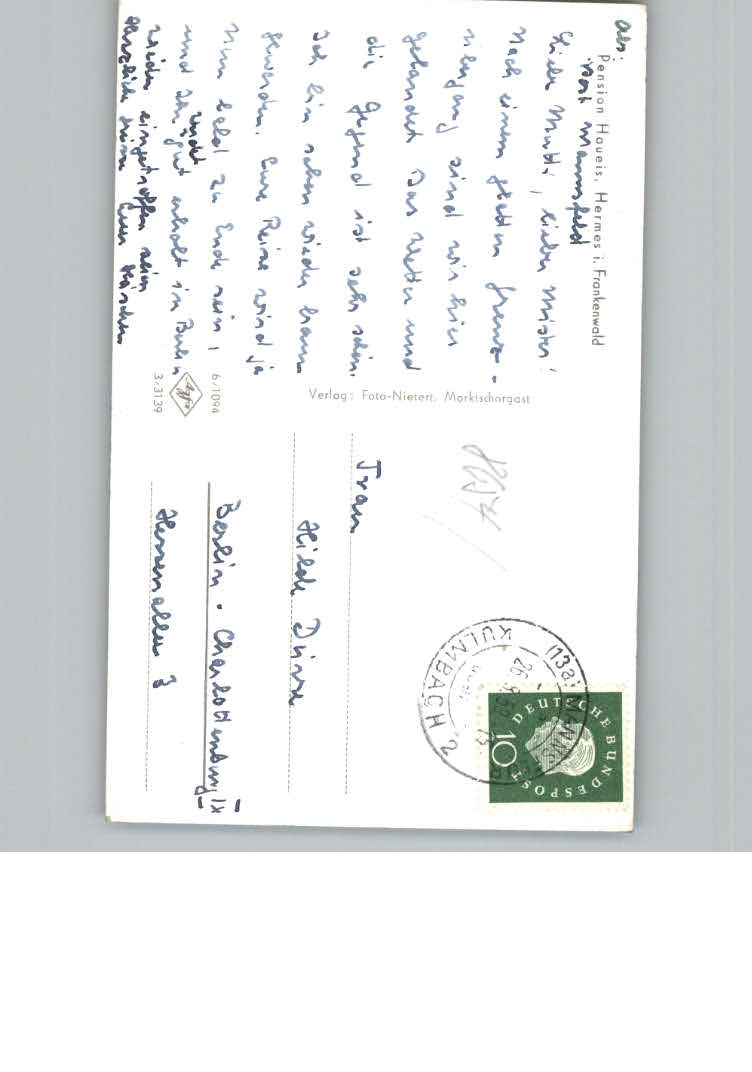 Pension Haueis, Hermes i. Frankenwald
Post Mannsfeld
Liebe Mutti, lieber
Nach einem glatten Grenz-
übergang sind wir hier
gelandet. Das Wetter und
die Gegend ist sehr schön.
Ich bin schon wieder braun
geworden. Eure Reise wird ja
nun bald zu Ende sein,
und Ihr gut erholt in Berlin
wieder eingetroffen sein
Herzliche Euer
Verlag: Foto-Nietert, Marktschorgast
6/1094
Agfa
3/3139
Frau
Hilde
Berlin-Charlottenburg 9
3
(13a)
KULMBACH 2
DEUTSCHE BUNDESPOST
10